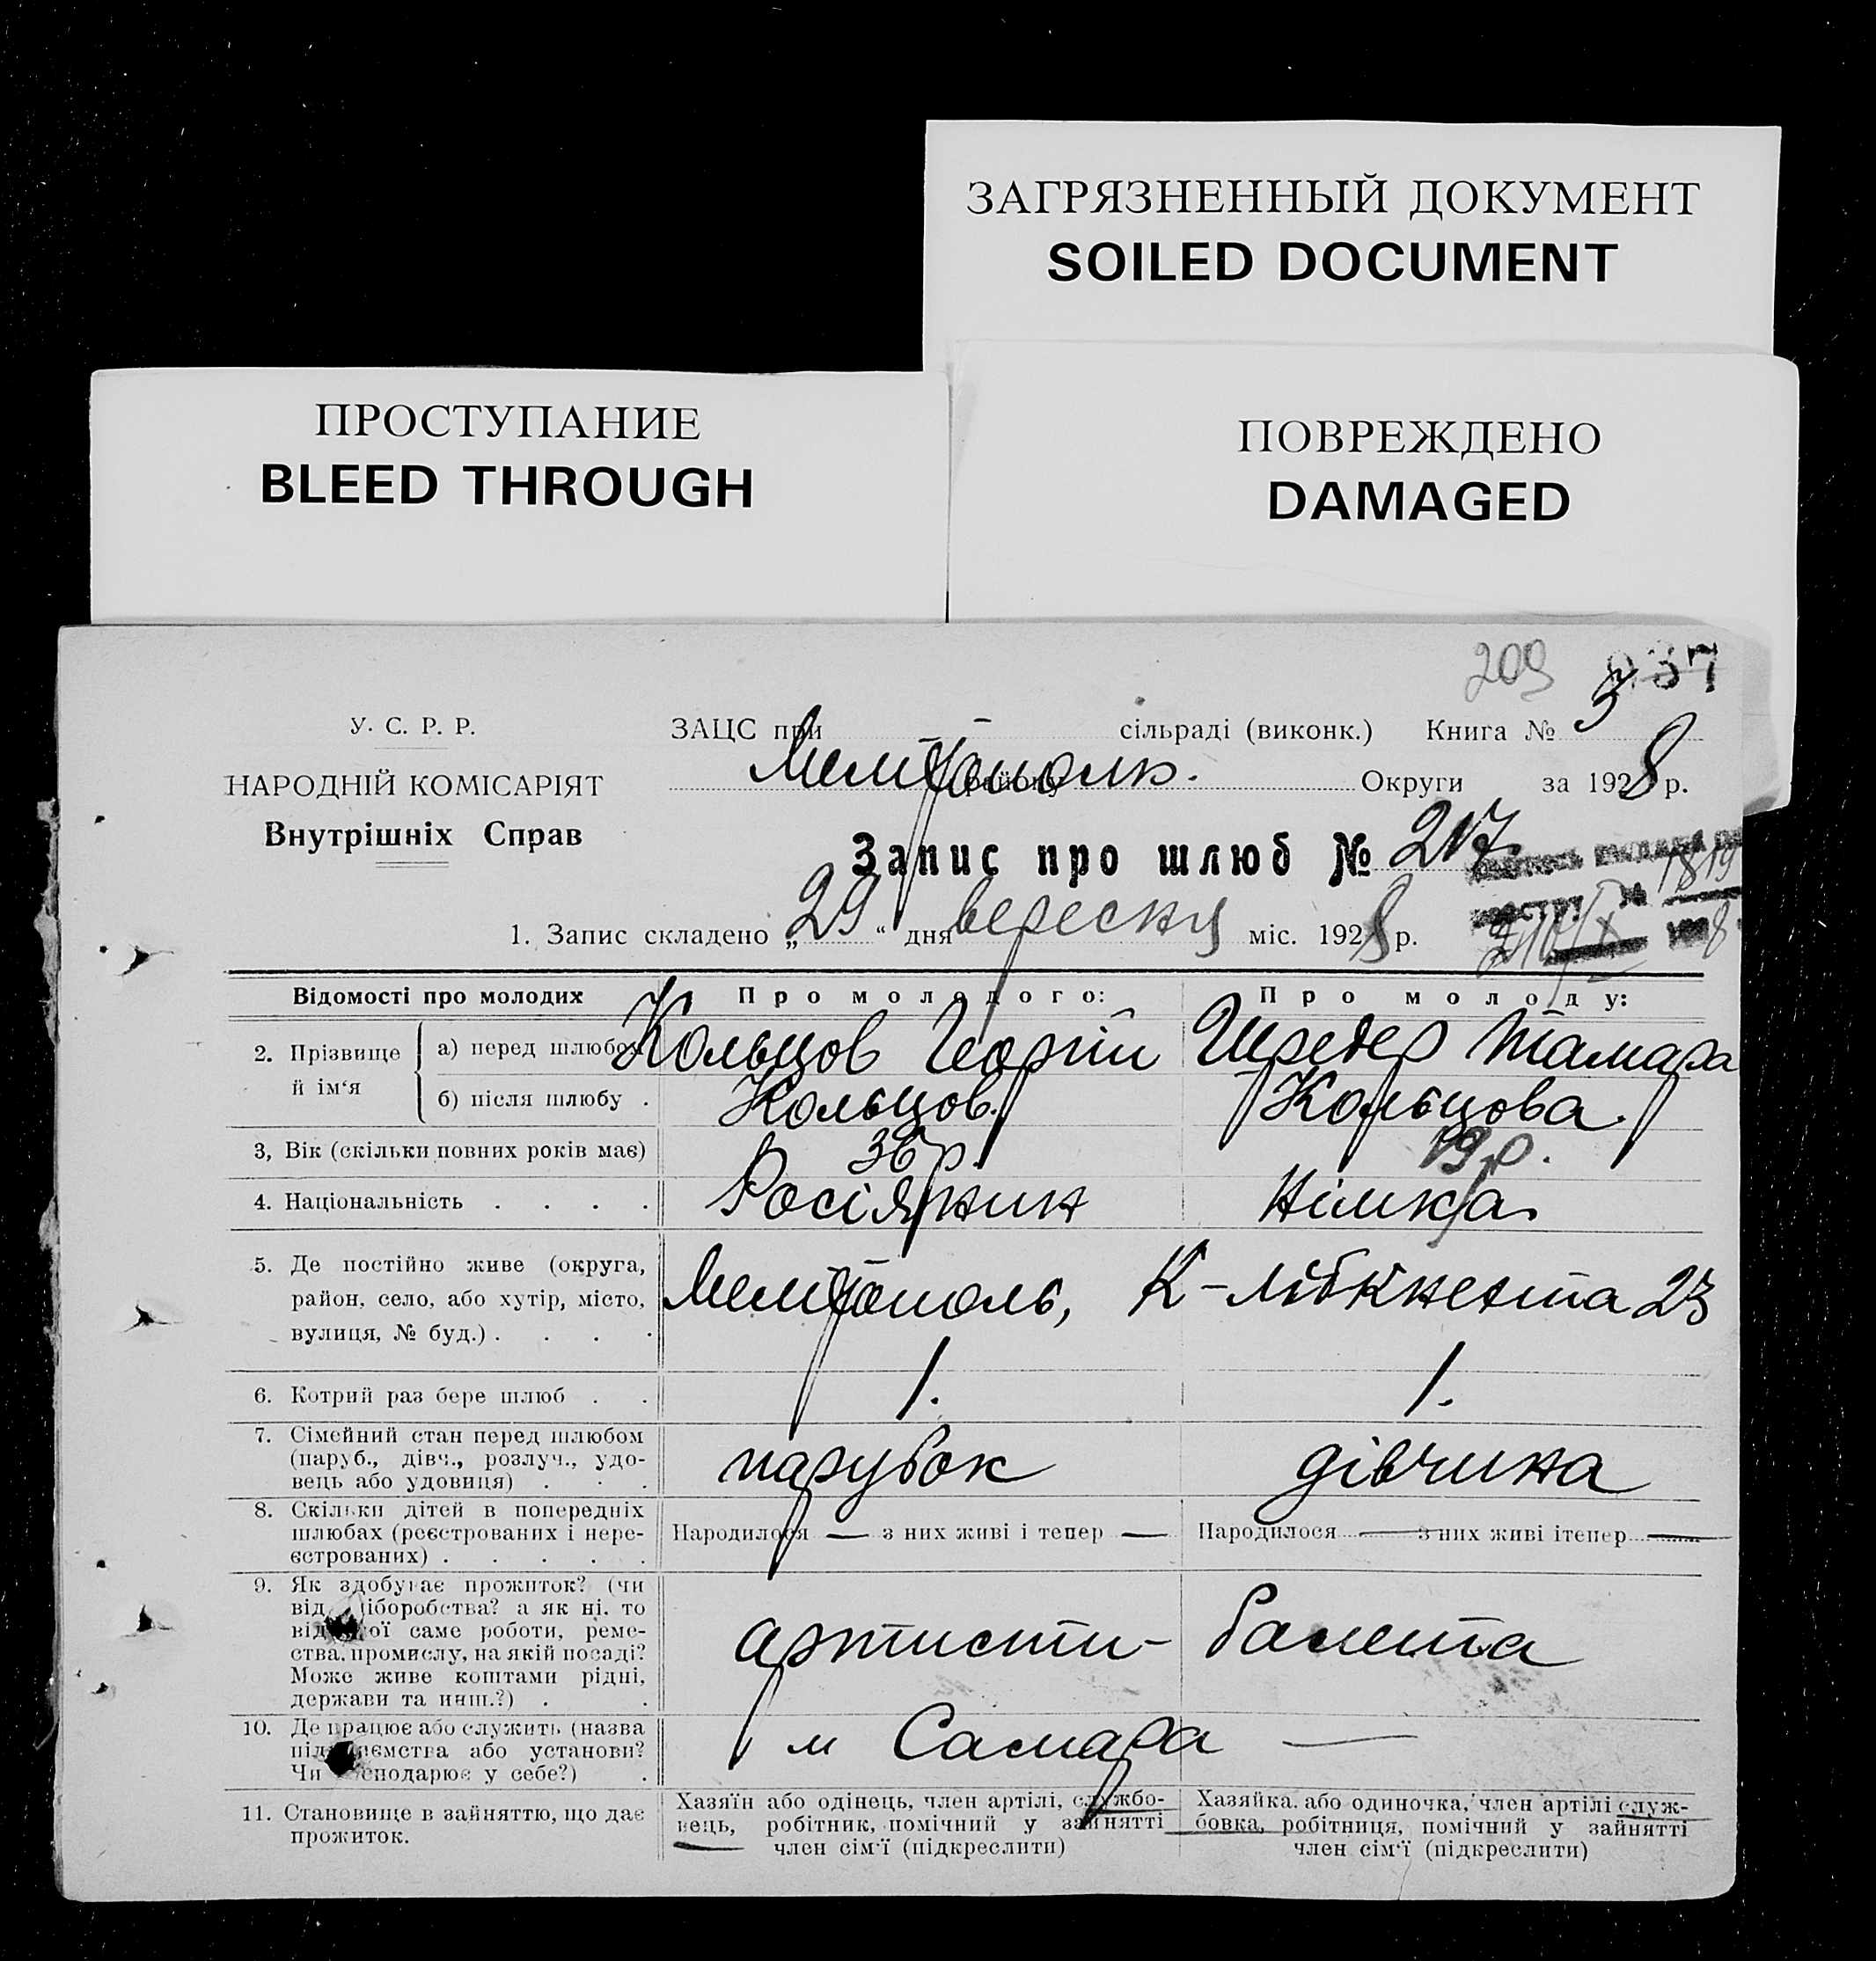 ЗАГРЯЗНЕННЫЙ ДОКУМЕНТ
SOILED DOCUMENT
ПРОСТУПАНИЕ
BLEED THROUGH
ПОВРЕЖДЕНО
DAMAGED
209
У. С. Р. Р.
НАРОДНІЙ КОМІСАРІЯТ
Внутрішніх Справ
ЗАЦС при сільраді (виконк.) Книга № 5
Мелітопольк. району Округи за 1928 р.
Запис про шлюб № 217
1. Запис складено „29“ дня вересня міс. 1928 р.
Відомості про молодих Про молодого: Про молоду:
2. Прізвище й ім‘я
а) перед шлюбом Кольцов Георгій Шредер Тамара
б) після шлюбу . Кольцов. Кольцова.
3, Вік (скільки повних років має) 36 р. 19 р.
4. Національність . . . . Росіянин Німка
5. Де постійно живе (округа,
район, село, або хутір, місто,
вулиця, № буд.) . . . .
Мелітополь, К-Лібкнехта 23
6. Котрий раз бере шлюб . . 1. 1.
7. Сімейний стан перед шлюбом
(паруб., дівч., розлуч., удо-
вець або удовиця) . . .
парубок дівчина
8. Скільки дітей в попередніх
шлюбах (реєстрованих і нере-
єстрованих) . . . . .
Народилося — з них живі і тепер — Народилося — з них живі ітепер —
9. Як здобуває прожиток? (чи
від ліборобства? а як ні. то
від ої саме роботи, реме-
ства, промислу, на якій посаді?
Може живе коштами рідні,
держави та инш.?) . .
артисти- балета
10. Де працює або служить (назва
під ємства або установи?
Чи сподарює у себе?) .
м Самара —
11. Становище в зайняттю, що дає
прожиток.
Хазяїн або одінець, член артілі, службо-
вець, робітник, помічний у зайнятті
член сім‘ї (підкреслити)
Хазяйка. або одиночка, член артілі служ-
бовка, робітниця, помічний у зайнятті
член сім‘ї (підкреслити)